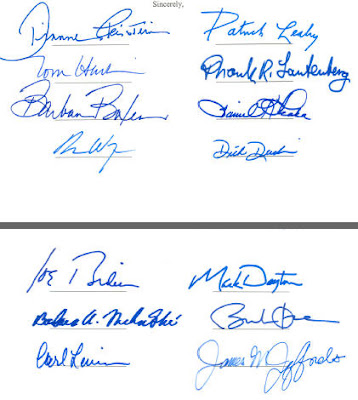 Sincerely,
Dianne Feinstein
Patrick Leahy
Tom Harkin
Frank R. Lautenberg
Barbara Boxer
Daniel K Akaka
Ron Wyden
Dick Durbin
Joe Biden
Mark Dayton
Barbara A. Mikulski
Carl Levin
James M. Jeffords